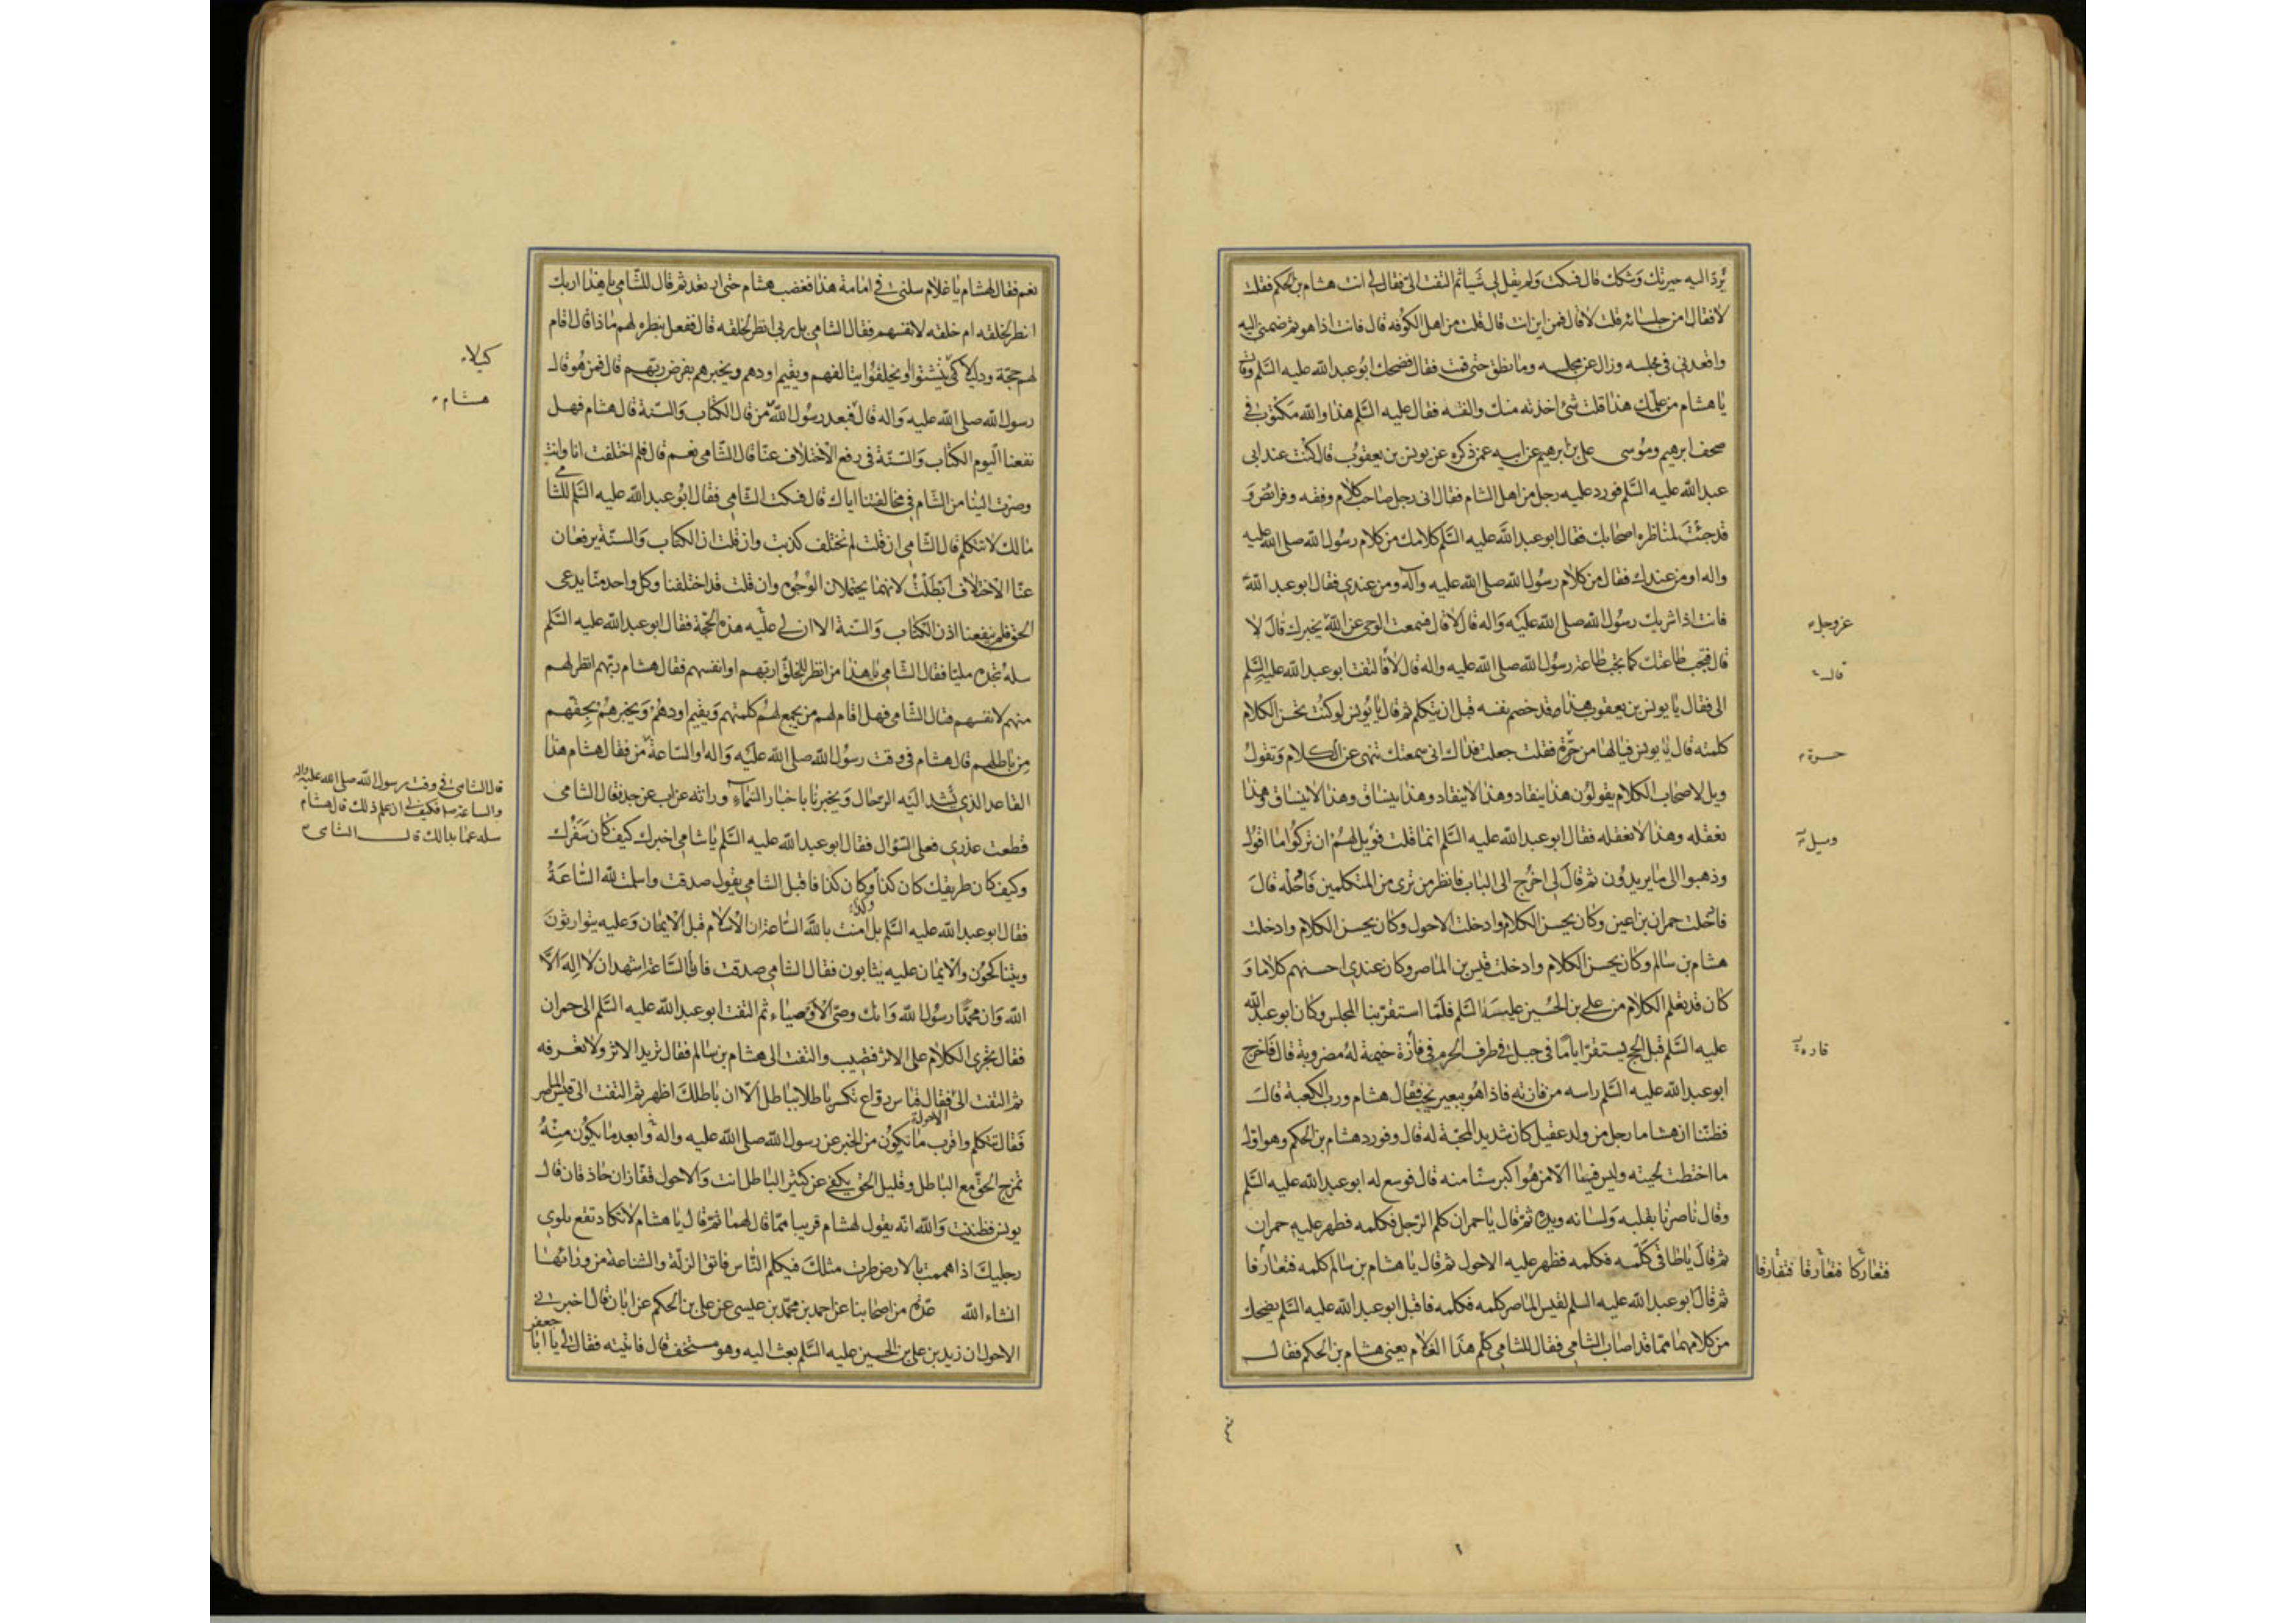 يُرَدّ اليه حيرتك وشكك قال فسكت ولم يقل لي شيأ ثم التفت الىّ فقال لى انت هشام بن الحكم فقلت
لا فقال امن جلسائه قلت لا قال فمن اين انت قال قلت من اهل الكوفه قال فانت اذا هو ثم ضمنى اليه
واقعدنى فى مجلسه وزال عن مجلسه وما نطق حتى قمت فقال فضحك ابو عبد الله عليه السّلم وقال
يا هشام من علمك هذا قلت شئ اخذته منك والفته فقال عليه السّلم هذا والله مكتوب فى
صحف ابرهيم وموسى على بن ابرهيم عن ابيه عمن ذكره عن يونس بن يعقوب قال كنت عند ابى
عبد الله عليه السّلم فورد عليه رجل من اهل الشام فقال انى رجل صاحب كلام وفقه وفرائض و
قد جئت لمناظره اصحابك فقال ابو عبد الله عليه السّلم كلامك من كلام رسول الله صلى الله عليه
واله او من عندك فقال من كلام رسول الله صلى الله عليه وآله ومن عندى فقال ابو عبد الله
فانت اذا شريك رسول الله صلى الله عليه واله قال لا قال فسمعت الوحى عن الله يخبرك قال لا
عزوجل
قال فتجب طاعتك كما تجب طاعة رسول الله صلى الله عليه واله قال لا فالتفت ابو عبد الله عليه السّلم
قال
الى فقال يا يونس بن يعقوب هذا قد خصم نفسه قبل ان يتكلم ثم قال يا يونس لو كنت تحسن الكلام
كلمته قال يا يونس فيالها من حسرة فقلت جعلت فداك انى سمعتك تنهى عن الكلام وتقول
حسرة
ويل لاصحاب الكلام يقولون هذا ينقاد وهذا لا ينقاد وهذا ينساق وهذا لا ينساق وهذا
نعقله وهذا لا نعقله فقال ابو عبد الله عليه السّلم انما قلت فويل لهم ان تركوا ما اقول
وذهبوا الى ما يريدون ثم قال لى اخرج الى الباب فانظر من ترى من المتكلمين فادخله قال
فادخلت حمران بن اعين وكان يحسن الكلام وادخلت الاحول وكان يحسن الكلام وادخلت
هشام بن سالم وكان يحسن الكلام وادخلت قيس بن الماصر وكان عندى احسنهم كلاما و
كان قد تعلم الكلام من على بن الحسين عليهما السّلم فلمّا استقرّ بنا المجلس وكان ابو عبد الله
عليه السّلم قبل الحج يستقرّ اياما فى جبل فى طرف الحرم فى فازة خيمة له مضروبة قال فاخرج
فازة
ابو عبد الله عليه السّلم راسه من فازته فاذا هو ببعير يخب فقال هشام ورب الكعبة قال
فظننا ان هشاما رجل من ولد عقيل كان شديد المحبّة له قال وفورد هشام بن الحكم وهو اول
ما اختطت لحيته وليس فينا الّا من هو اكبر سنّا منه قال فوسع له ابو عبد الله عليه السّلم
وقال ناصرنا بقلبه ولسانه ويده ثمّ قال يا حمران كلم الرّجل فكلمه فظهر عليه حمران
ثم قال يا طاقى كلّمه فكلمه فظهر عليه الاحول ثم قال يا هشام بن سالم كلمه فتعارفا
فتعاركا فتعارقا فتفارقا
ثم قال ابو عبد الله عليه السلم لقيس الماصر كلمه فكلمه فاقبل ابو عبد الله عليه السّلم يضحك
من كلامهما ممّا قد اصاب الشامى فقال للشامى كلّم هذا الغلام يعنى هشام بن الحكم فقال
نعم فقال لهشام يا غلام سلنى فى امامة هذا فغضب هشام حتى ارتعد ثم قال للشّامى يا هذا اربك
انظر لخلقه ام خلقه لانفسهم فقال الشامى بل ربى انظر لخلقه قال ففعل بنظره لهم ماذا قال اقام
لهم حجّة ودليلا كى يتشتتوا او يختلفوا يتالفهم ويقيم اودهم ويخبرهم بفرض ربّهم قال فمن هو قال
كيلا
رسول الله صلى الله عليه واله قال فبعد رسول الله من قال الكتاب والسّنة قال هشام فهل
هشام
نفعنا اليوم الكتاب والسّنّة فى رفع الاختلاف عنّا قال الشّامى نعم قال فلم اختلفت انا وانت
وصرت الينا من الشّام فى مخالفتنا اياك قال فسكت الشّامى فقال ابو عبد الله عليه السّلم للشامى
مالك لا تتكلم قال الشّامى ان قلت لم نختلف كذبت وان قلت ان الكتاب والسنّة يرفعان
عنّا الاختلاف ابطلت لانهما يحتملان الوجوه وان قلت قد اختلفنا وكل واحد منّا يدعى
الحق فلم ينفعنا اذن الكتاب والسّنة الا ان لى عليه هذه الحجّة فقال ابو عبد الله عليه السّلم
سله تجده مليّا فقال الشّامى يا هذا من انظر للخلق اربّهم او انفسهم فقال هشام ربّهم انظر لهم
منهم لانفسهم فقال الشّامى فهل اقام لهم من يجمع لهم كلمتهم ويقيم اودهم ويخبرهم بحقّهم
من باطلهم قال هشام فى وقت رسول الله صلى الله عليه واله او السّاعة من فقال هشام هذا
قال الشامى فى وقت رسول الله صلى الله عليه واله
والساعة من فكيف لى ان علم ذلك قال هشام
سله عما بدا لك قال الشامى
القاعد الذى تشد اليه الرحال ويخبرنا باخبار السّماء وراثة عن اب عن جد فقال الشامى
قطعت عذرى فعلى السّؤال فقال ابو عبد الله عليه السّلم يا شامى اخبرك كيف كان سفرك
وكيف كان طريقك كان كذا وكان كذا فاقبل الشامى يقول صدقت واسلمت لله السّاعة
وكذا
فقال ابو عبد الله عليه السّلم بل امنت بالله السّاعة ان الاسلام قبل الايمان وعليه يتوارثون
ويتناكحون والايمان عليه يثابون فقال الشامى صدقت فانا السّاعة اشهد ان لا اله الّا
الله وان محمّدا رسول الله وانك وصىّ الاوصياء ثم التفت ابو عبد الله عليه السّلم الى حمران
فقال تجرى الكلام على الاثر فتصيب والتفت الى هشام بن سالم فقال تريد الاثر ولا تعرفه
ثم التفت الى الاحول فقال قيّاس روّاغ تكسر باطلا بباطل الّا ان باطلك اظهر ثم التفت الى قيس الماصر
فقال تتكلم واقرب ما تكون من الخبر عن رسول الله صلى الله عليه واله وابعد ما تكون منه
تمزج الحق مع الباطل وقليل الحق يكفى عن كثير الباطل انت والاحول قفّازان حاذقان قال
يونس فظننت والله انّه يقول لهشام قريبا ممّا قال لهما ثمّ قال يا هشام لا تكاد تقع تلوى
رجليك اذا هممت بالارض طرت مثلك فيكلم النّاس فاتق الزلّة والشفاعة من ورائها
انشاء الله عدّة من اصحابنا عن احمد بن محمّد بن عيسى عن على بن الحكم عن ابان قال اخبرنى
الاحول ان زيد بن على بن الحسين عليه السّلم بعث اليه وهو مستخف قال فاتيته فقال لى يا ابا
جعفر